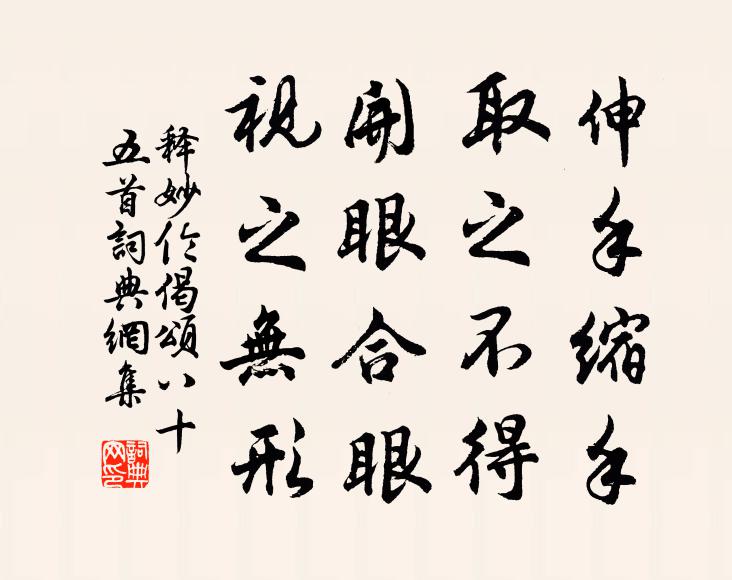 伸手縮手
取之不得
開眼合眼
視之無形
释妙伦偈頌八十
五首詞典網集
詞典
网印